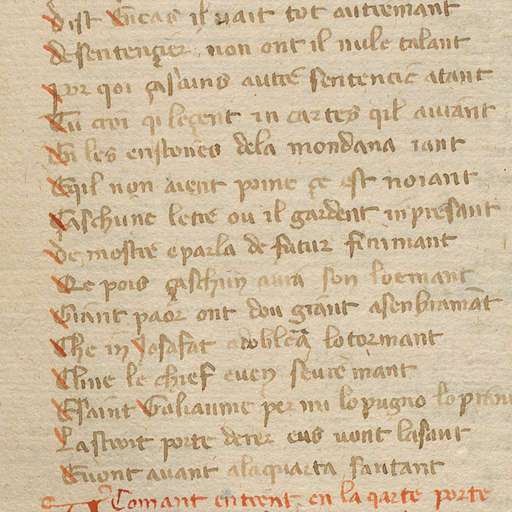 Dist Guicas il uait tot autremant
De sentençier non ont il nule talant
Por qoi çascuns autre sentencie atant
Eu croi qi leçent in cartes qil auiant
En les eristones dela mondana iant
Eqil non aient poine ce est noiant
Çaschune letre ou il gardent inpresant
De mostre e parla de futur finimant
Qe pois çaschun aura son loemant
Grant paor ont dou grant asenbramant
Che in Iosafat adobleça lo tormant
Cline le chief e uen seuremant
E saint Guliaume per mi lo pugno lo prant
La stroit porte derer eus uont lasant
E uont auant ala quarta sautant
Comant entrent en la qarte porte